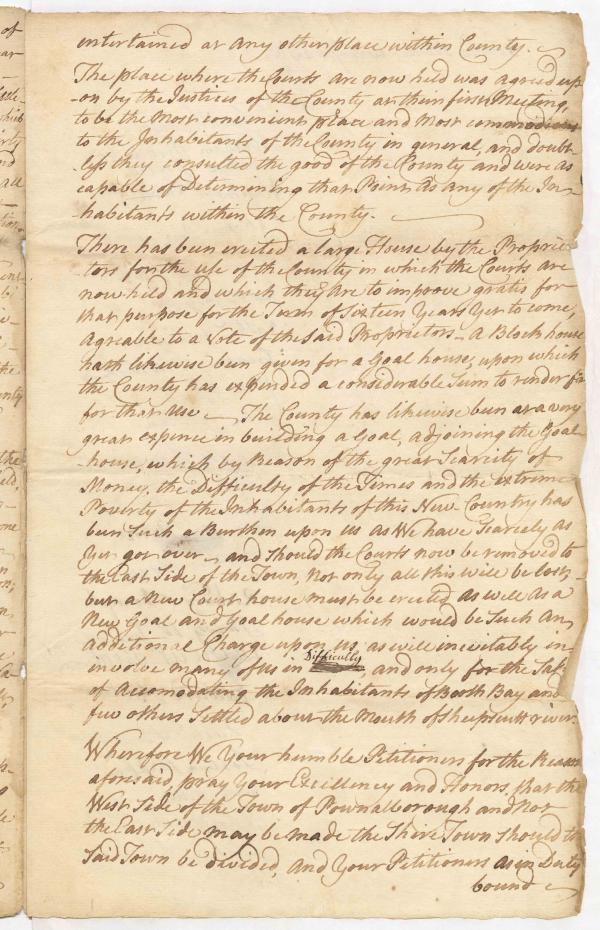 entertained at any other place within County.
The place where the Courts are now held was agreed up-
-on by the Justices of the County at their first Meeting,
to be the Most convenient place and Most commodious
to the Inhabitants of the County in general, and doubt-
-less they consulted the good of the County and were as
capable of Determining that Point as any of the In-
-habitants within the County.
There has been erected a large House by the Proprie-
tors for the use of the County in which the Courts are
now held and which they are to improve gratis for
that purpose for the Term of Sixteen Years Yet to come,
Agreable to a Vote of the Said Proprietors - A Block house
hath likewise been given for a Goal house, upon which
the County has expended a considerable Sum to render fit
for that Use - The County has likewise been at a very
great expence in building a Goal, adjoining the Goal
-house, which by Reason of the great Scarcity of
Money, the Difficulty of the Times and the extreme
Poverty of the Inhabitants of this New Country has
been Such a Burthen upon us as We have Scarcely as
Yet got over - and should the Courts now be removed to
the East Side of the Town, Not only all this will be lost,
but a New Court house must be erected as well as a
New Goal and Goal house which would be Such an
additional Charge upon us, as will inevitably in-
involve many of us in Difficulty, and only for the Sake
of Accomodating the Inhabitants of Booth Bay and
few others Settled about the Mouth of Sheepscutt river.
Wherefore We Your humble Petitioners for the Reason
aforesaid, pray Your Excellency and Honors, that the
West Side of the Town of Pownalborough and Not
the East Side may be made the Shire Town should the
Said Town be divided, and Your Petitioners as in Duty
bound